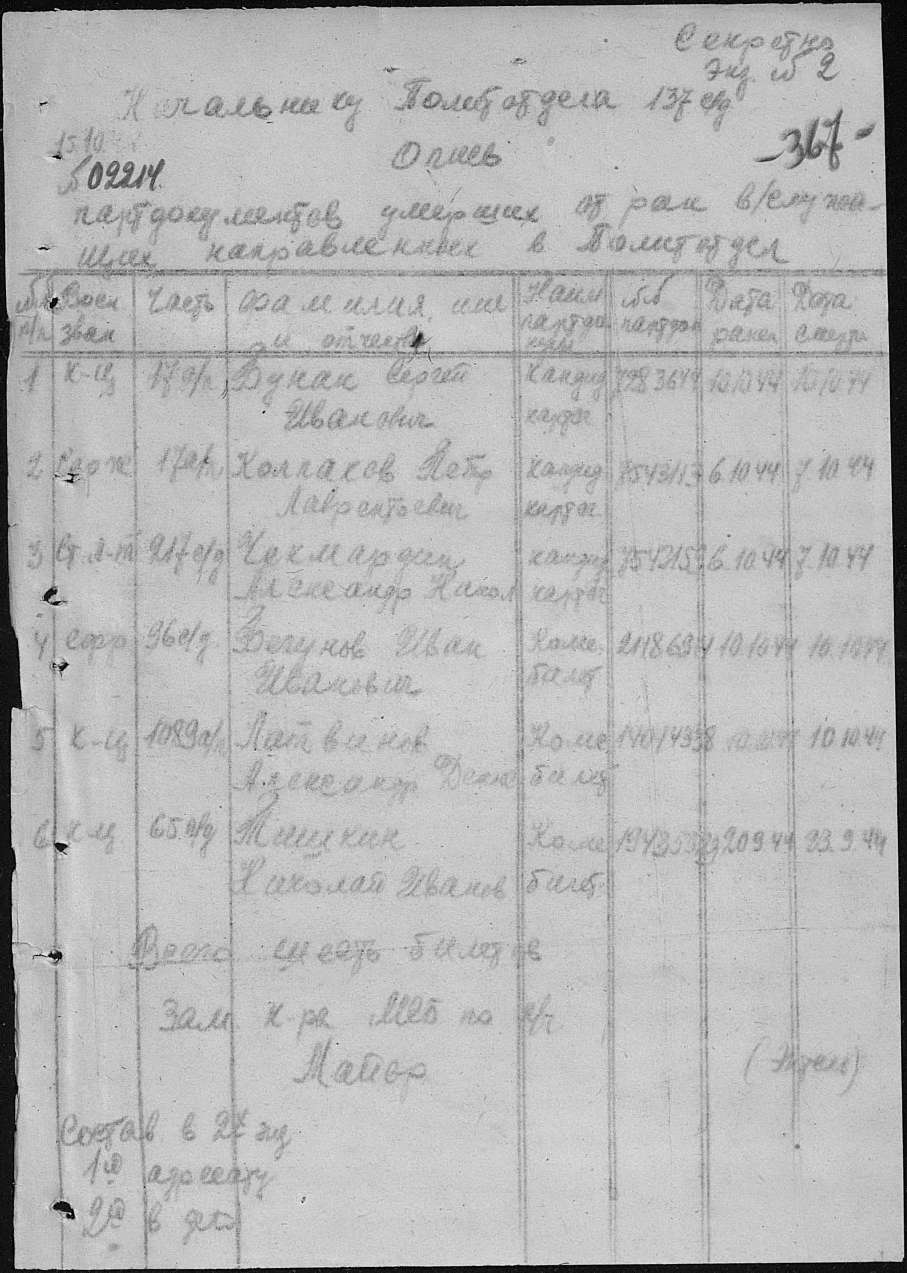 Секретно
Экз. № 2
Начальнику Политотдела 137 сд
15.10
Опись
-367-
№ 02214.
партдокументов умерших от ран в/служа-
щих направленных в Политотдел
№№ п/п Воен зван Часть Фамилия, имя и отчество Наим партдокумен №№ партдок Дата ранен Дата смерти
1 К-ц 17 с/п Бунак Сергей 10.10.44 10.10.44
Иванович карточ
2 17 Колпаков Петр Кандид 7543157 6.10.44 7.10.44
Лаврентьевич карточ
3 Ст. л-т 217 с/д Чекмардин кандид 7543153 6.10.44 7.10.44
Александр Никол карточ
4 Ефр 96 с/д Бегунов Иван Комс 10.10.44 10.10.44
Иванович билет
5 К-ц 1089 Латвинов Комс 14014338 10.10.44
Александр билет
6 К-ц 65 с/д Тишкин Комс 20.9.44 23.9.44
Николай Иванов билет
Всего шесть билетов
Зам. к-ра МСБ по п/ч
Майор
Состав в 2х экз
1й адресату
2й в дело